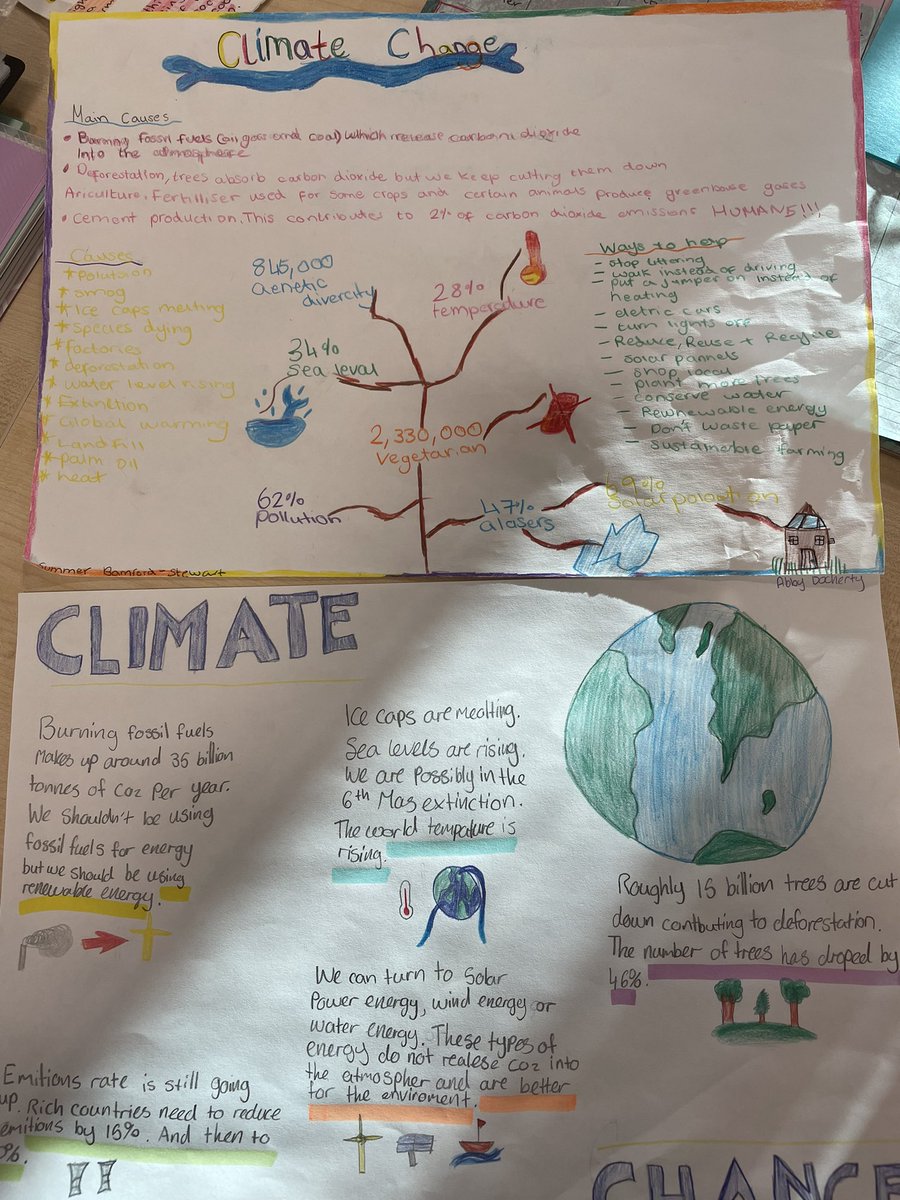 Climate Change
Main Causes
• Burning fossil fuels (oil, gas and coal) which release carbon dioxide
Into the atmosphere
• Deforestation, trees absorb carbon dioxide but we keep cutting them down
Ariculture. Fertiliser used for some crops and certain animals produce greenhouse gases
• Cement production. This contributes to 2% of carbon dioxide emissions HUMANE!!!
Causes
* Polution
* smog
* Ice caps melting
* species dying
* factories
* deforestation
* water level rising
* Extinction
* Global warming
* Land fill
* palm oil
* heat
845,000
Genetic
divercity
28%
temperature
34%
Sea leval
2,330,000
vegetarian
62%
pollution
47%
glasers
69%
Solar
Ways to help
– stop littering
– walk instead of driving
– put a jumper on instead of
heating
– eletric cars
– turn lights off
– Reduce, Reuse + Recycle
– solar pannels
– shop local
– plant more trees
– conserve water
– Rewnewable energy
– Don't waste paper
– sustainable farming
Summer Bamford-Stewart
Abby Docherty
CLIMATE
Burning fossil fuels
makes up around 35 billion
tonnes of Co2 Per year.
We shouldn't be using
fossil fuels for energy
but we should be using
renewable energy.
Ice caps are mealting.
Sea levels are rising.
We are Possibly in the
6th Mas extinction.
The world tempature is
rising.
Roughly 15 billion trees are cut
down contbuting to deforestation.
The number of trees has droped by
46%.
We can turn to Solar
Power energy, wind energy or
water energy. These types of
energy do not realese Co2 into
the atmospher and are better
for the enviroment.
Emitions rate is still going
up. Rich countries need to reduce
emitions by 15%. And then to
%.
CHANGE